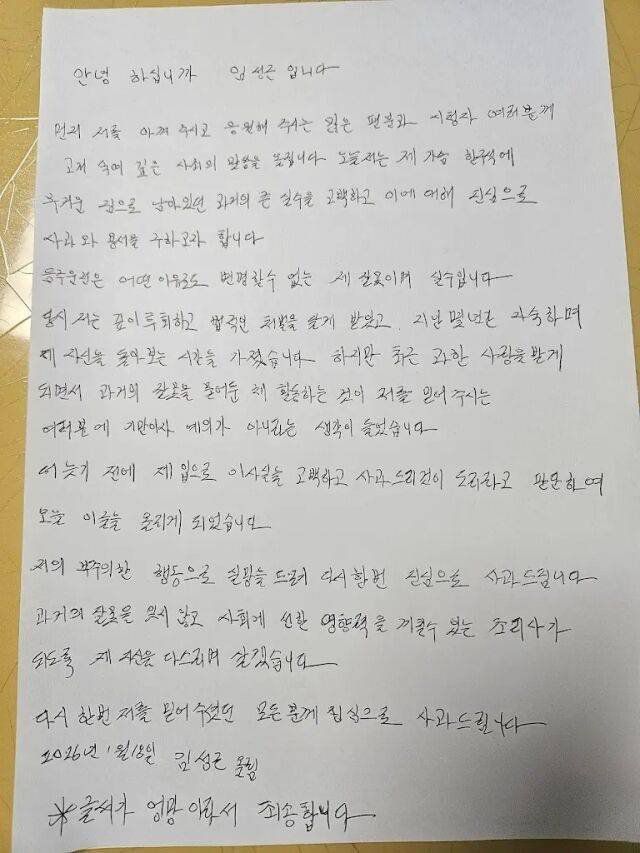 안녕 하십니까 임성근 입니다
먼저 저를 아껴 주시고 응원해 주시는 많은 팬분과 시청자 여러분께
고개 숙여 깊은 사죄의 말씀을 올립니다 오늘 저는 제 가슴 한구석에
무거운 짐으로 남아있던 과거의 큰 실수를 고백하고 이에 대해 진심으로
사과와 용서를 구하고자 합니다
음주운전은 어떤 이유로도 변명할수 없는 제 잘못이며 실수입니다
당시 저는 깊이 후회하고 법적인 처벌을 달게 받았고, 지난 몇년간 자숙하며
제 자신을 돌아보는 시간을 가졌습니다 하지만 최근 과한 사랑을 받게
되면서 과거의 잘못을 묻어둔 채 활동하는 것이 저를 믿어 주시는
여러분에 기만이자 예의가 아니라는 생각이 들었습니다
더 늦기 전에 제 입으로 이사실을 고백하고 사과드리것이 도리라고 판단하여
오늘 이글을 올리게 되었습니다
저의 부주의한 행동으로 실망을 드려 다시한번 진심으로 사과드립니다
과거의 잘못을 잊지 않고 사회게 선한 영향력을 끼칠수 있는 조리사가
되도록 제 자신을 다스리며 살겠습니다
다시 한번 저를 믿어 주셨던 모든 분께 진심으로 사과드립니다
2026년 1월 18일 김성근 올림
※글씨가 엉망 이라서 죄송합니다